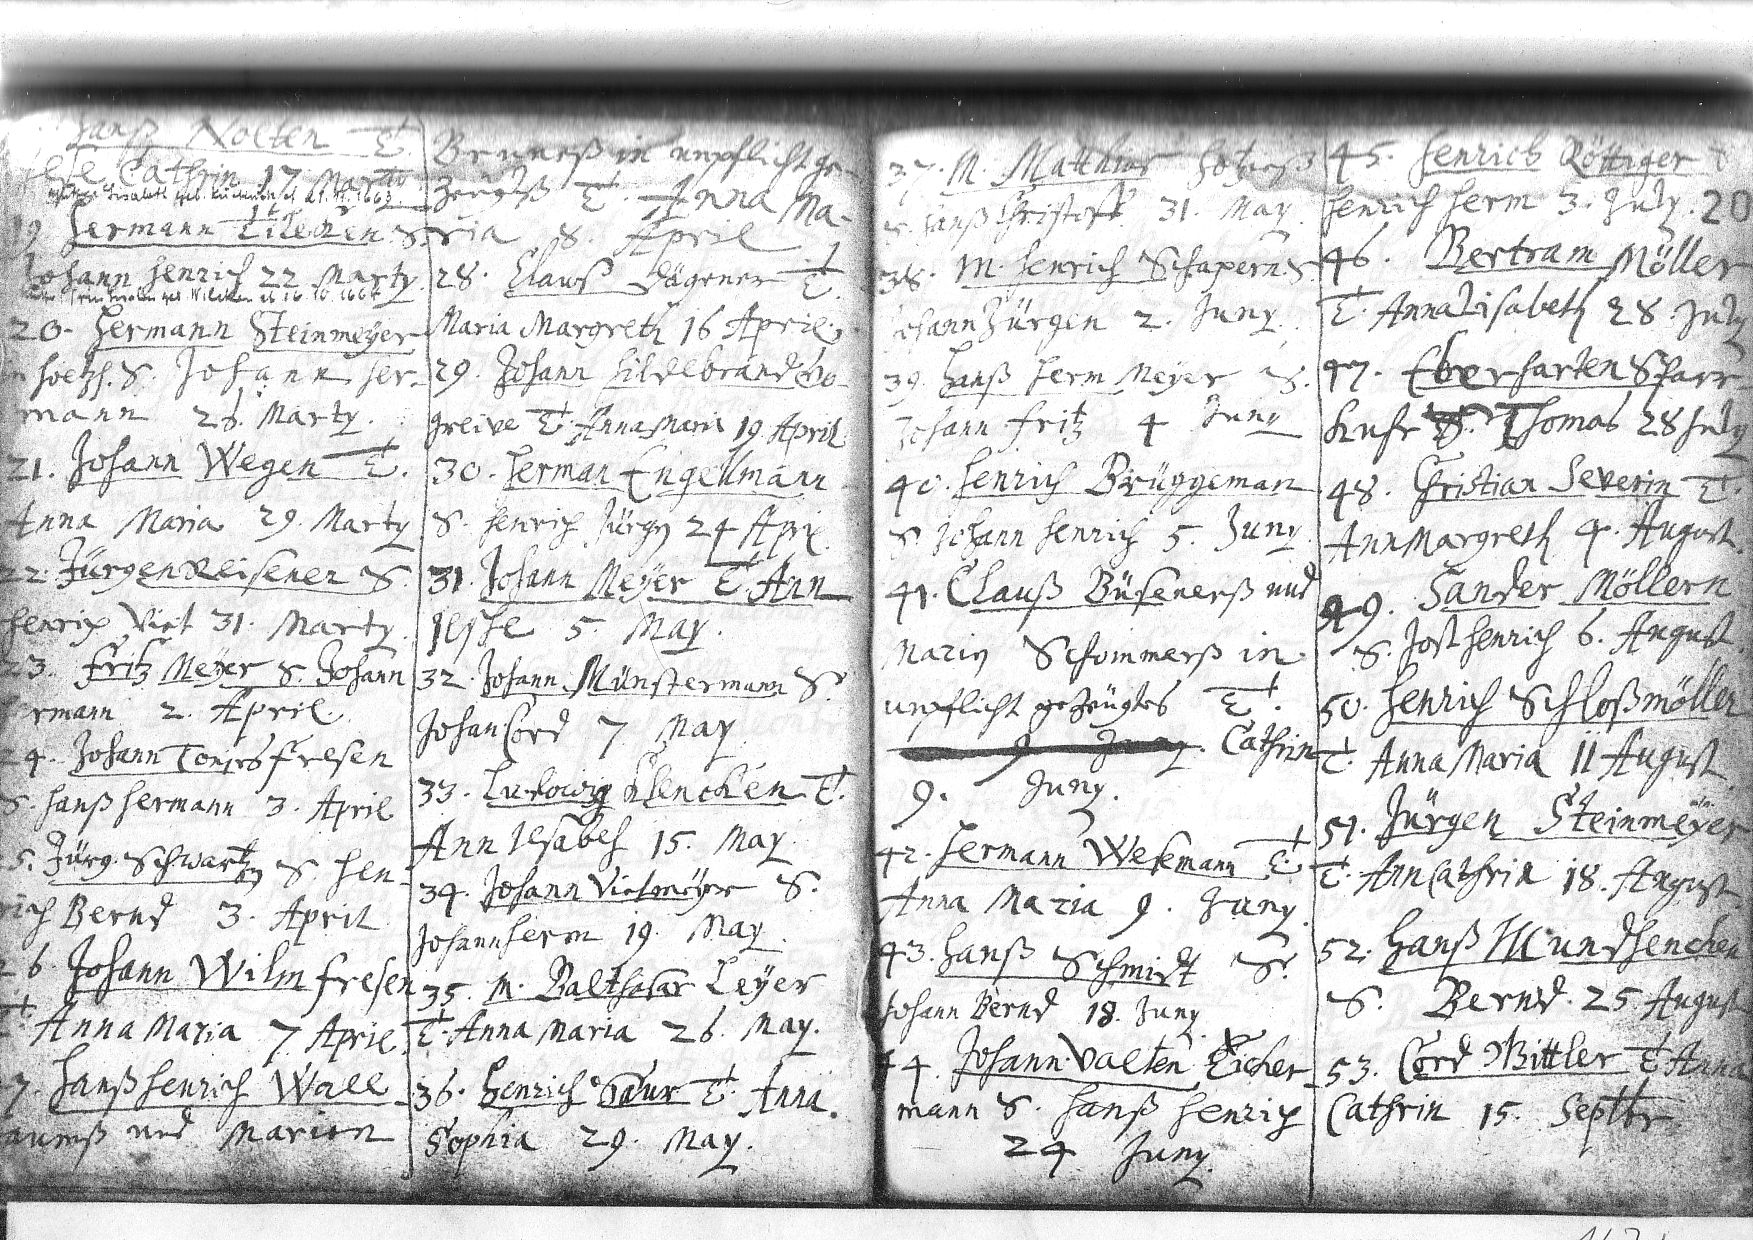 Hanß Nolten T.
Cathrin 17 Marty
19 Hermann Tilecken S.
Johann Henrich 22 Marty
20. Hermann Steinmeyer
S. Johann Her-
mann 28. Marty.
21. Johann Wegen T.
Anna Maria 29. Marty
22. Jürgen Reisener S.
Henrich Vict 31. Marty.
23. Fritz Meyer S. Johann
ermann 2. April
24. Johann Tonjes Fresen
S. Hanß Hermann 3. April
5. Jürg. Schwartzen S. Hen-
rich Bernd 3. April
26. Johann Wilm Fresen
T. Anna Maria 7 April.
7. Hanß Henrich Wall-
und Marien
Brunß in unpflicht ge-
zeugtß T. Anna Ma-
ria 8. April
28. Clawß Dägener T.
Maria Margreth 16 April.
29. Johann Hildebrand Ho-
greive T. Anna Maria 19 April
30. Herman Engellmann
S. Henrich Jürgn 24 April.
31. Johann Meyer T. Ann
Ilsche 5. May.
32. Johann Münstermann S.
Johan Cord 7 May
33. Ludowig Klencken T.
Ann Ilsabeh 15. May.
34. Johann Vietmeyer S.
Johann Herm 19. May
35. M. Balthasar Leyer
T. Anna Maria 26. May.
36. Henrich Saur T. Anna
Sophia 29. May.
37. M. Matthias
S. Hanß Christoff 31. May.
38. M. Henrich Schapern S.
Johann Jürgen 2. Juny
39. Hanß Herm Meyer S.
Johann Fritz 4 Juny
40. Henrich Brüggeman
S. Johann Henrich 5. Juny.
41. Clauß Büsenerß und
Marien Schommerß in
unpflicht gezeugtes T.
Cathrin
9. Juny.
42. Hermann Wekemann T.
Anna Maria 9. Juny.
43. Hanß Schmidt S.
Johann Bernd 18. Juny
44. Johann Valten Eicher-
mann S. Hanß Henrich
24 Juny.
45. Henrich Röttiger T
Henrich Herm 3. July. 20
46. Bertram Möller
T. Anna Lisabeth 28 July
47. Eberharten Sparr-
hufe S. Thomas 28 July
48. Christian Severin T.
Ann Margreth 4. August.
49. Sander Möllern
S. Jost Henrich 6. August.
50. Henrich Schloßmöller
T. Anna Maria 11 August.
51. Jürgen Steinmeyer
T. Ann Cathrin 18. August
52. Hanß Mundhencken
S. Bernd. 25 August
53. Cord Bittler T. Anna
Cathrin 15. Septbr